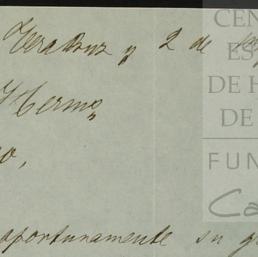 Veracruz y 2 de
Hermo
o,
oportunamente su g
CEN
ES
DE H
DE
FUN
Ca